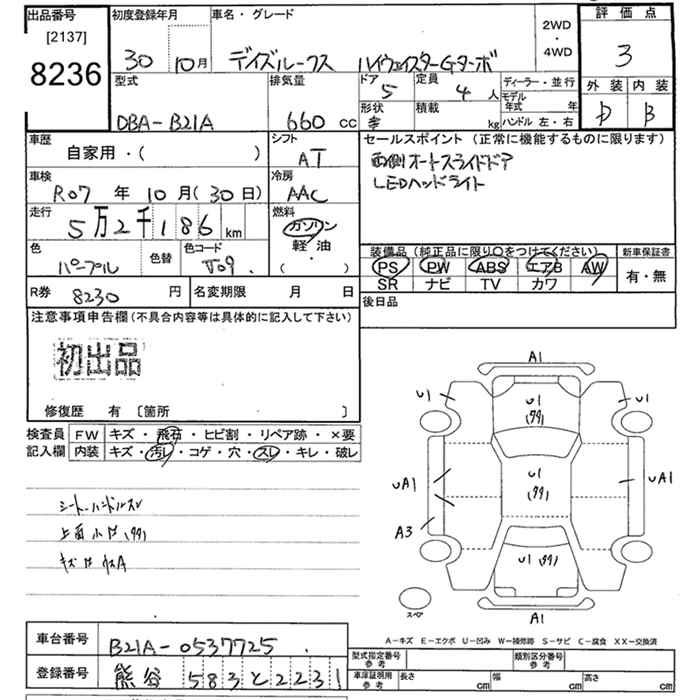 出品番号 初度登録年月 車名・グレード 2WD・4WD 評価点
[2137]
8236 30 10月 デイズルークス ハイウェイスターGターボ 3
型式 排気量 ドア 5 定員 4人 ディーラー・並行 外装 内装
DBA-B21A 660 cc 形状 積載 kg モデル年式 年 ハンドル 左・右 D B
車歴 自家用・( ) シフト AT セールスポイント(正常に機能するものに限ります)
両側オートスライドドア
LEDヘッドライト
車検 R07年10月(30日) 冷房 AAC
走行 5万2千186km 燃料 ガソリン 軽油 ・( )
装備品(純正品に限り○をつけてください) 新車保証書
色 パープル 色替 色コード PS PW ABS エアB AW 有・無
SR ナビ TV カワ
R券 8230円 名変期限 月 日 後日品
注意事項申告欄(不具合内容等は具体的に記入して下さい)
初出品
修復歴 有 〔箇所 〕
検査員 FW キズ・飛石・ヒビ割・リペア跡・×要
記入欄 内装 キズ・汚レ・コゲ・穴・スレ・キレ・破レ
シート・ハンドルスレ
A1
U1 U1 U1
UA1 U1 UA1
A3
U1
A1
スペア
A-キズ E-エクボ U-凹み W-補修跡 S-サビ C-腐食 XX-交換済
車台番号 B21A-0537725
登録番号 熊谷 583と2231
型式指定番号 参考 類別区分番号 参考
車庫証明用 参考 長さ cm 幅 cm 高さ cm